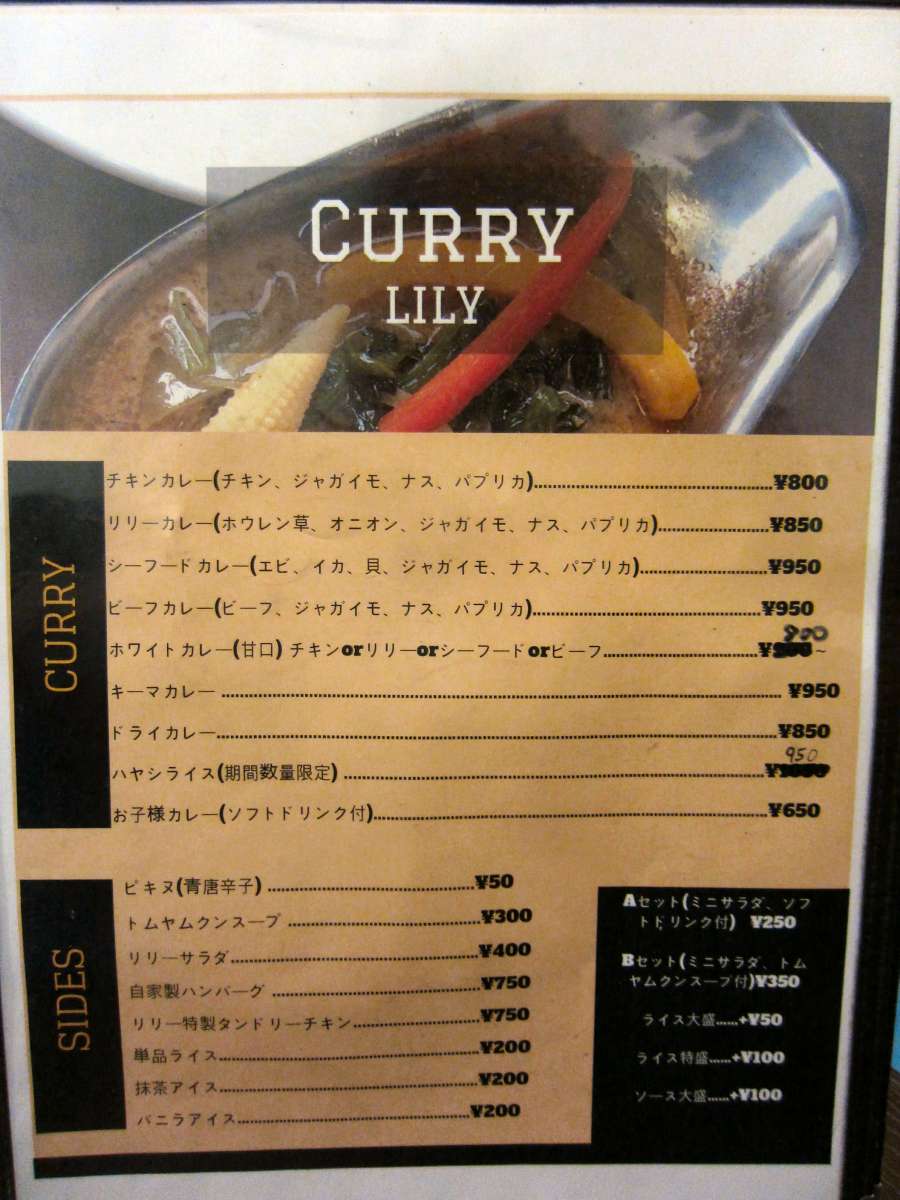 CURRY
LILY
CURRY
チキンカレー(チキン、ジャガイモ、ナス、パプリカ)....¥800
リリーカレー(ホウレン草、オニオン、ジャガイモ、ナス、パプリカ)....¥850
シーフードカレー(エビ、イカ、貝、ジャガイモ、ナス、パプリカ)....¥950
ビーフカレー(ビーフ、ジャガイモ、ナス、パプリカ)....¥950
ホワイトカレー(甘口) チキンorリリーorシーフードorビーフ....¥900~
キーマカレー ....¥950
ドライカレー....¥850
ハヤシライス(期間数量限定) ....¥950
お子様カレー(ソフトドリンク付)....¥650
SIDES
ピキヌ(青唐辛子) ....¥50
トムヤムクンスープ ....¥300
リリーサラダ....¥400
自家製ハンバーグ ....¥750
リリー特製タンドリーチキン....¥750
単品ライス....¥200
抹茶アイス....¥200
バニラアイス....¥200
Aセット(ミニサラダ、ソフ
トドリンク付) ¥250
Bセット(ミニサラダ、トム
ヤムクンスープ付)¥350
ライス大盛......+¥50
ライス特盛......+¥100
ソース大盛......+¥100